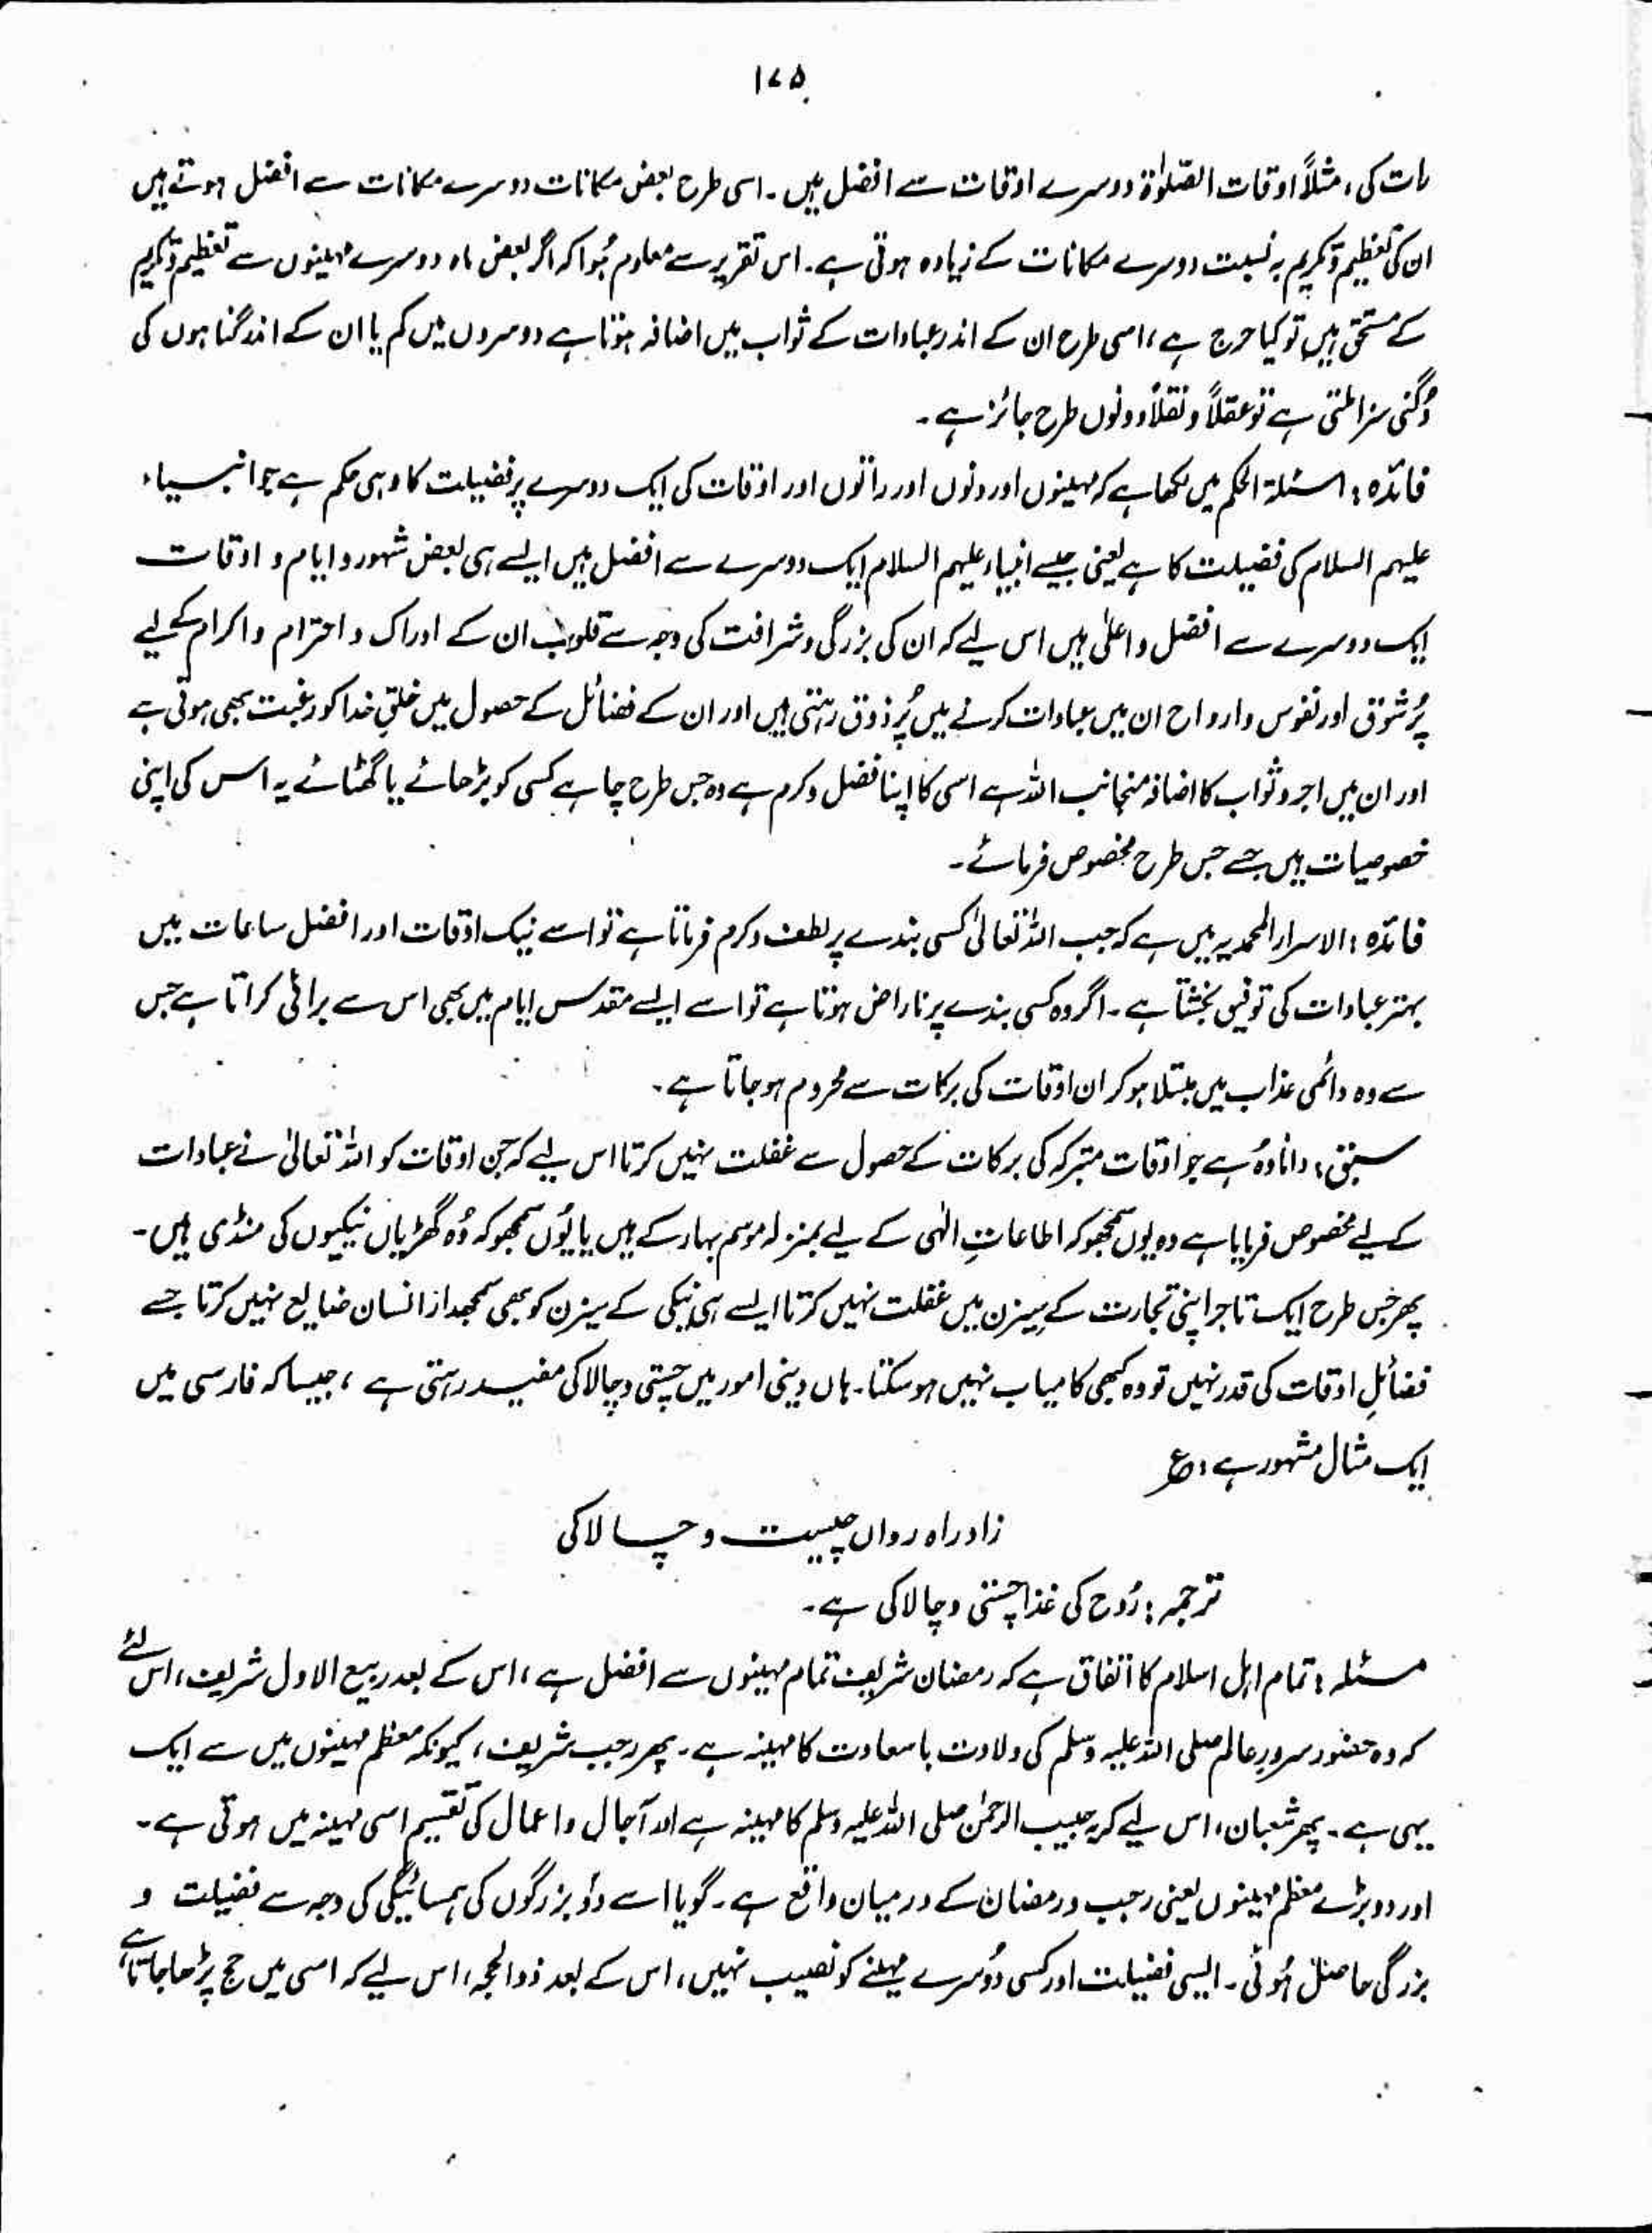 ۱۷۵
رات کی، مثلاً اوقات الصّلوٰۃ دوسرے اوقات سے افضل ہیں۔ اسی طرح بعض مکانات دوسرے مکانات سے افضل ہوتے ہیں
ان کی تعظیم و تکریم بہ نسبت دوسرے مکانات کے زیادہ ہوتی ہے۔ اس تقریر سے معلوم ہُوا کہ اگر بعض ماہ دوسرے مہینوں سے تعظیم و تکریم
کے مستحق ہیں تو کیا حرج ہے، اسی طرح ان کے اندر عبادات کے ثواب میں اضافہ ہوتا ہے دوسروں میں کم یا ان کے اندر گناہوں کی
دُگنی سزا ملتی ہے تو عقلاً و نقلاً دونوں طرح جائز ہے۔
فائدہ: اسئلۃ الحکم میں لکھا ہے کہ مہینوں اور دنوں اور راتوں اور اوقات کی ایک دوسرے پر فضیلت کا وہی حکم ہے جو انبیاء
علیہم السلام کی فضیلت کا ہے یعنی جیسے انبیاء علیہم السلام ایک دوسرے سے افضل ہیں ایسے ہی بعض شہور و ایام و اوقات
ایک دوسرے سے افضل و اعلیٰ ہیں اس لیے کہ ان کی بزرگی و شرافت کی وجہ سے قلوب ان کے ادراک و احترام و اکرام کے لیے
پُر شوق اور نفوس و ارواح ان میں عبادات کرنے میں پُر ذوق رہتی ہیں اور ان کے فضائل کے حصول میں خلقِ خدا کو رغبت بھی ہوتی ہے
اور ان میں اجر و ثواب کا اضافہ منجانب اللہ ہے اسی کا اپنا فضل و کرم ہے وہ جس طرح چاہے کسی کو بڑھائے یا گھٹائے یہ اس کی اپنی
خصوصیات ہیں جسے جس طرح مخصوص فرمائے۔
فائدہ: الاسرار المحمدیہ میں ہے کہ جب اللہ تعالیٰ کسی بندے پر لطف و کرم فرماتا ہے تو اسے نیک اوقات اور افضل ساعات میں
بہتر عبادات کی توفیق بخشتا ہے۔ اگر وہ کسی بندے پر ناراض ہوتا ہے تو اسے ایسے مقدس ایام میں بھی اس سے برائی کراتا ہے جس
سے وہ دائمی عذاب میں مبتلا ہو کر ان اوقات کی برکات سے محروم ہو جاتا ہے۔
سبق: دانا وُہ ہے جو اوقات متبرکہ کی برکات کے حصول سے غفلت نہیں کرتا اس لیے کہ جن اوقات کو اللہ تعالیٰ نے عبادات
کے لیے مخصوص فرمایا ہے وہ یوں سمجھو کہ اطاعاتِ الٰہی کے لیے بمنزلہ موسم بہار کے ہیں یا یُوں سمجھو کہ وُہ گھڑیاں نیکیوں کی منڈی ہیں۔
پھر جس طرح ایک تاجر اپنی تجارت کے سیزن میں غفلت نہیں کرتا ایسے ہی نیکی کے سیزن کو بھی سمجھدار انسان ضایع نہیں کرتا جسے
فضائلِ اوقات کی قدر نہیں تو وہ کبھی کامیاب نہیں ہو سکتا۔ ہاں دینی امور میں چستی و چالاکی مفید رہتی ہے، جیسا کہ فارسی میں
ایک مثال مشہور ہے: ع
زاد راہ رواں چیست و چالاکی
ترجمہ: رُوح کی غذا چُستی و چالاکی ہے۔
مسئلہ: تمام اہل اسلام کا اتفاق ہے کہ رمضان شریف تمام مہینوں سے افضل ہے، اس کے بعد ربیع الاول شریف، اس لئے
کہ وہ حضور سرورِ عالم صلی اللہ علیہ وسلم کی ولادت باسعادت کا مہینہ ہے۔ پھر رجب شریف، کیونکہ معظم مہینوں میں سے ایک
یہی ہے۔ پھر شعبان، اس لیے کہ یہ حبیب الرحمٰن صلی اللہ علیہ وسلم کا مہینہ ہے اور آجال و اعمال کی تقسیم اسی مہینہ میں ہوتی ہے۔
اور دو بڑے معظم مہینوں یعنی رجب و رمضان کے درمیان واقع ہے۔ گویا اسے دُو بزرگوں کی ہمسائیگی کی وجہ سے فضیلت و
بزرگی حاصل ہُوئی۔ ایسی فضیلت اور کسی دُوسرے مہینے کو نصیب نہیں، اس کے بعد ذوالحجہ، اس لیے کہ اسی میں حج پڑھا جاتا ہے،